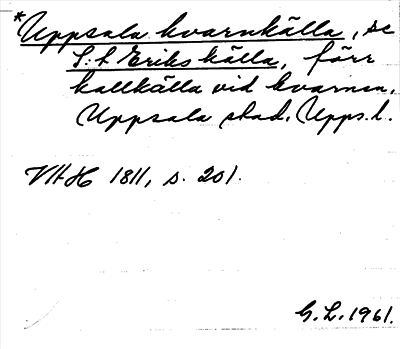 *Uppsala kvarnkälla, se
S:t Eriks källa, förr
kallkälla vid kvarnen.
Uppsala stad, Upps. l.
VHH 1811, s. 201.
G.L. 1961.